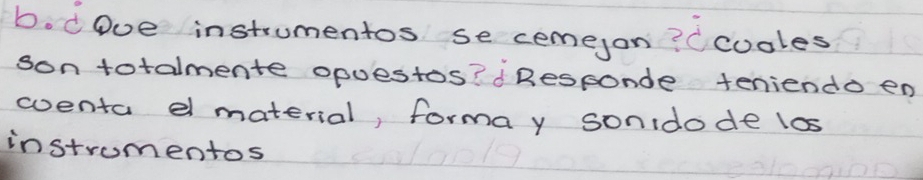 b. ¿Que instrumentos se cemejan? ¿cuales
son totalmente opuestos? ¿Responde teniendo en
cuenta el material, forma y sonido de los
instrumentos